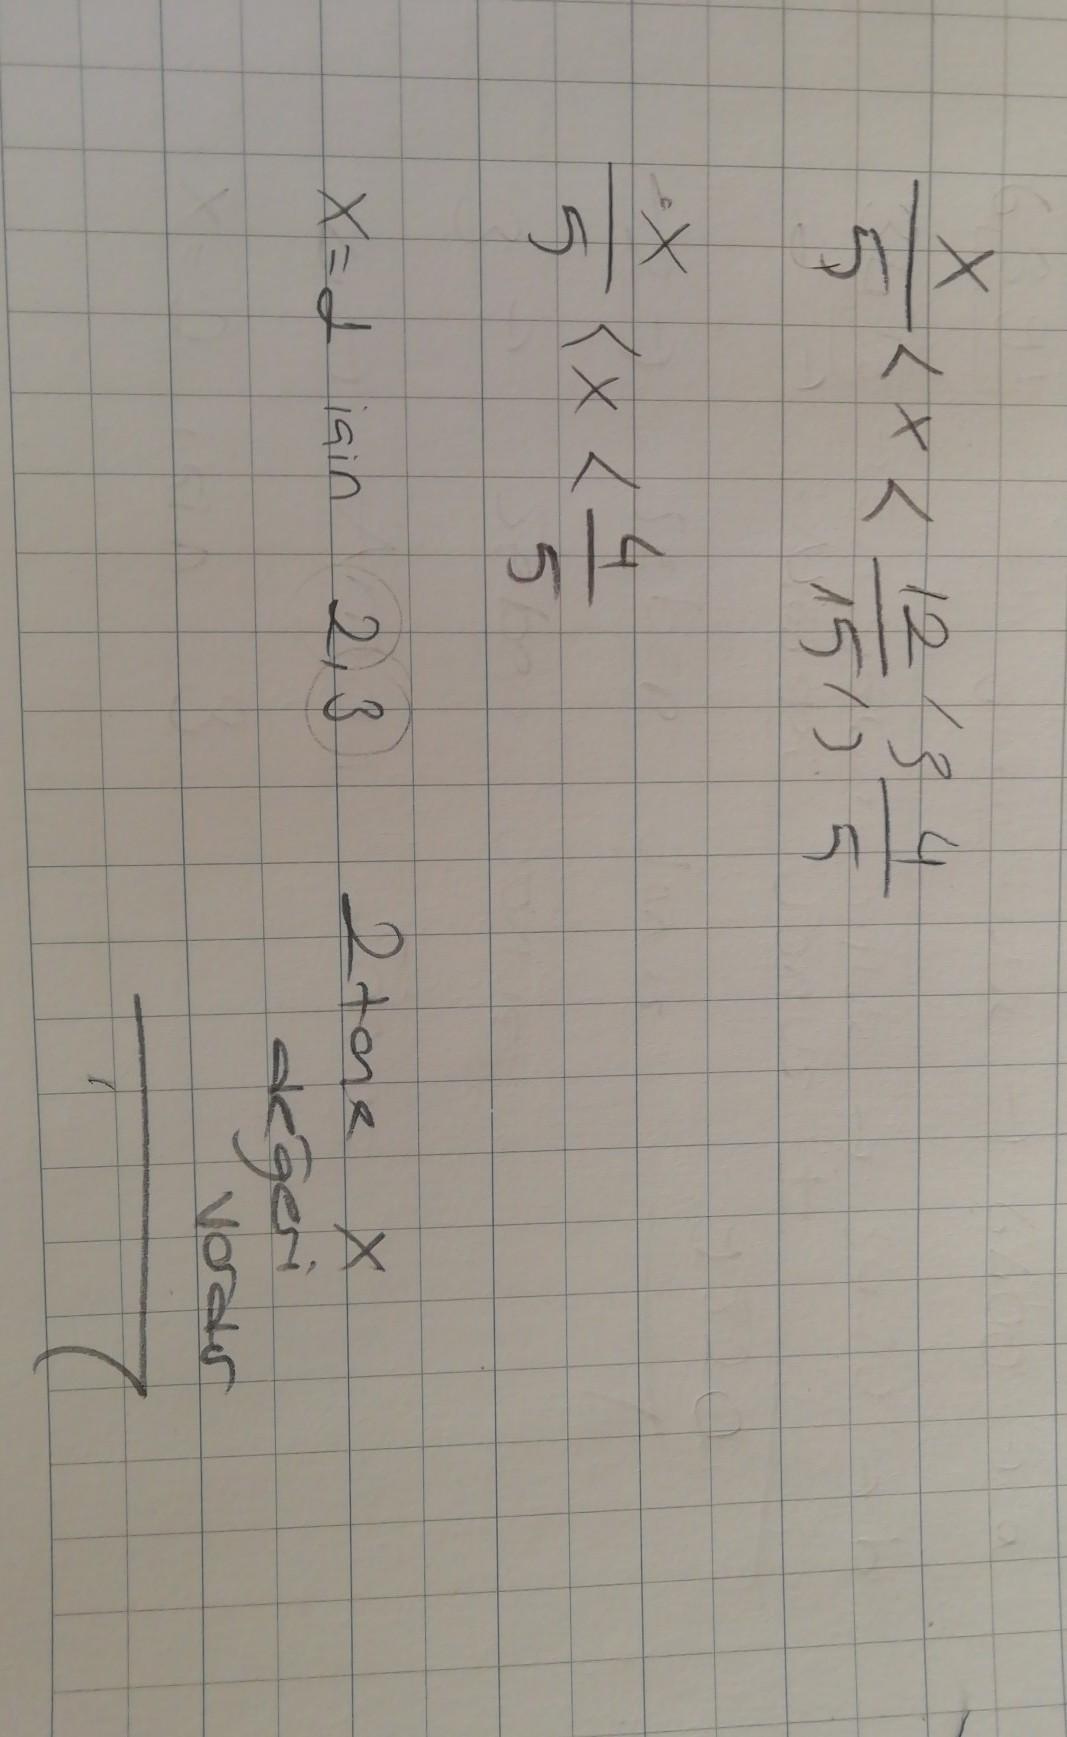 x/5 < x < 12/15 (/3 /3) 4/5
x/5 < x < 4/5
x = 1 için 2, 3 2 tane x
değeri
vardır